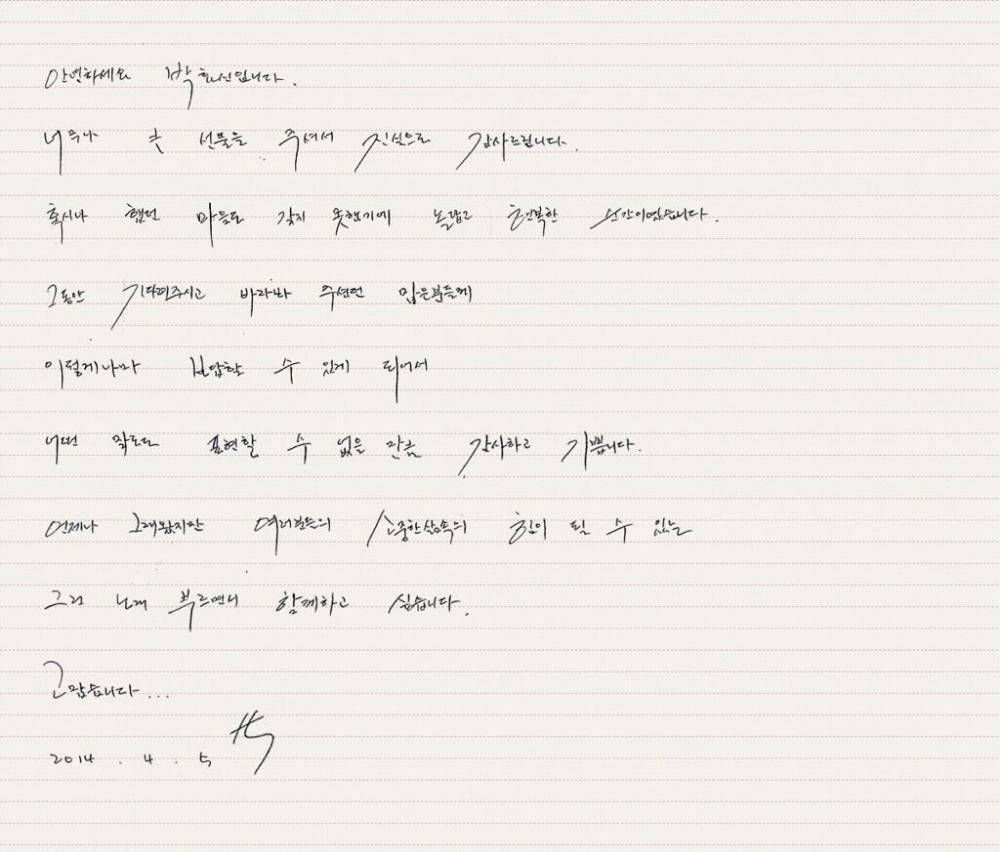 안녕하세요 박효신입니다.
너무나 큰 선물을 주셔서 진심으로 감사드립니다.
혹시나 했던 마음도 갖지 못했기에 놀랍고 행복한 순간이었습니다.
그동안 기다려주시고 바라봐 주셨던 많은분들께
이렇게나마 보답할 수 있게 되어서
어떤 말로도 표현할 수 없을 만큼 감사하고 기쁩니다.
언제나 그래왔지만 여러분들의 소중한삶속의 힘이 될 수 있는
그런 노래 부르면서 함께하고 싶습니다.
고맙습니다...
2014 . 4 . 5